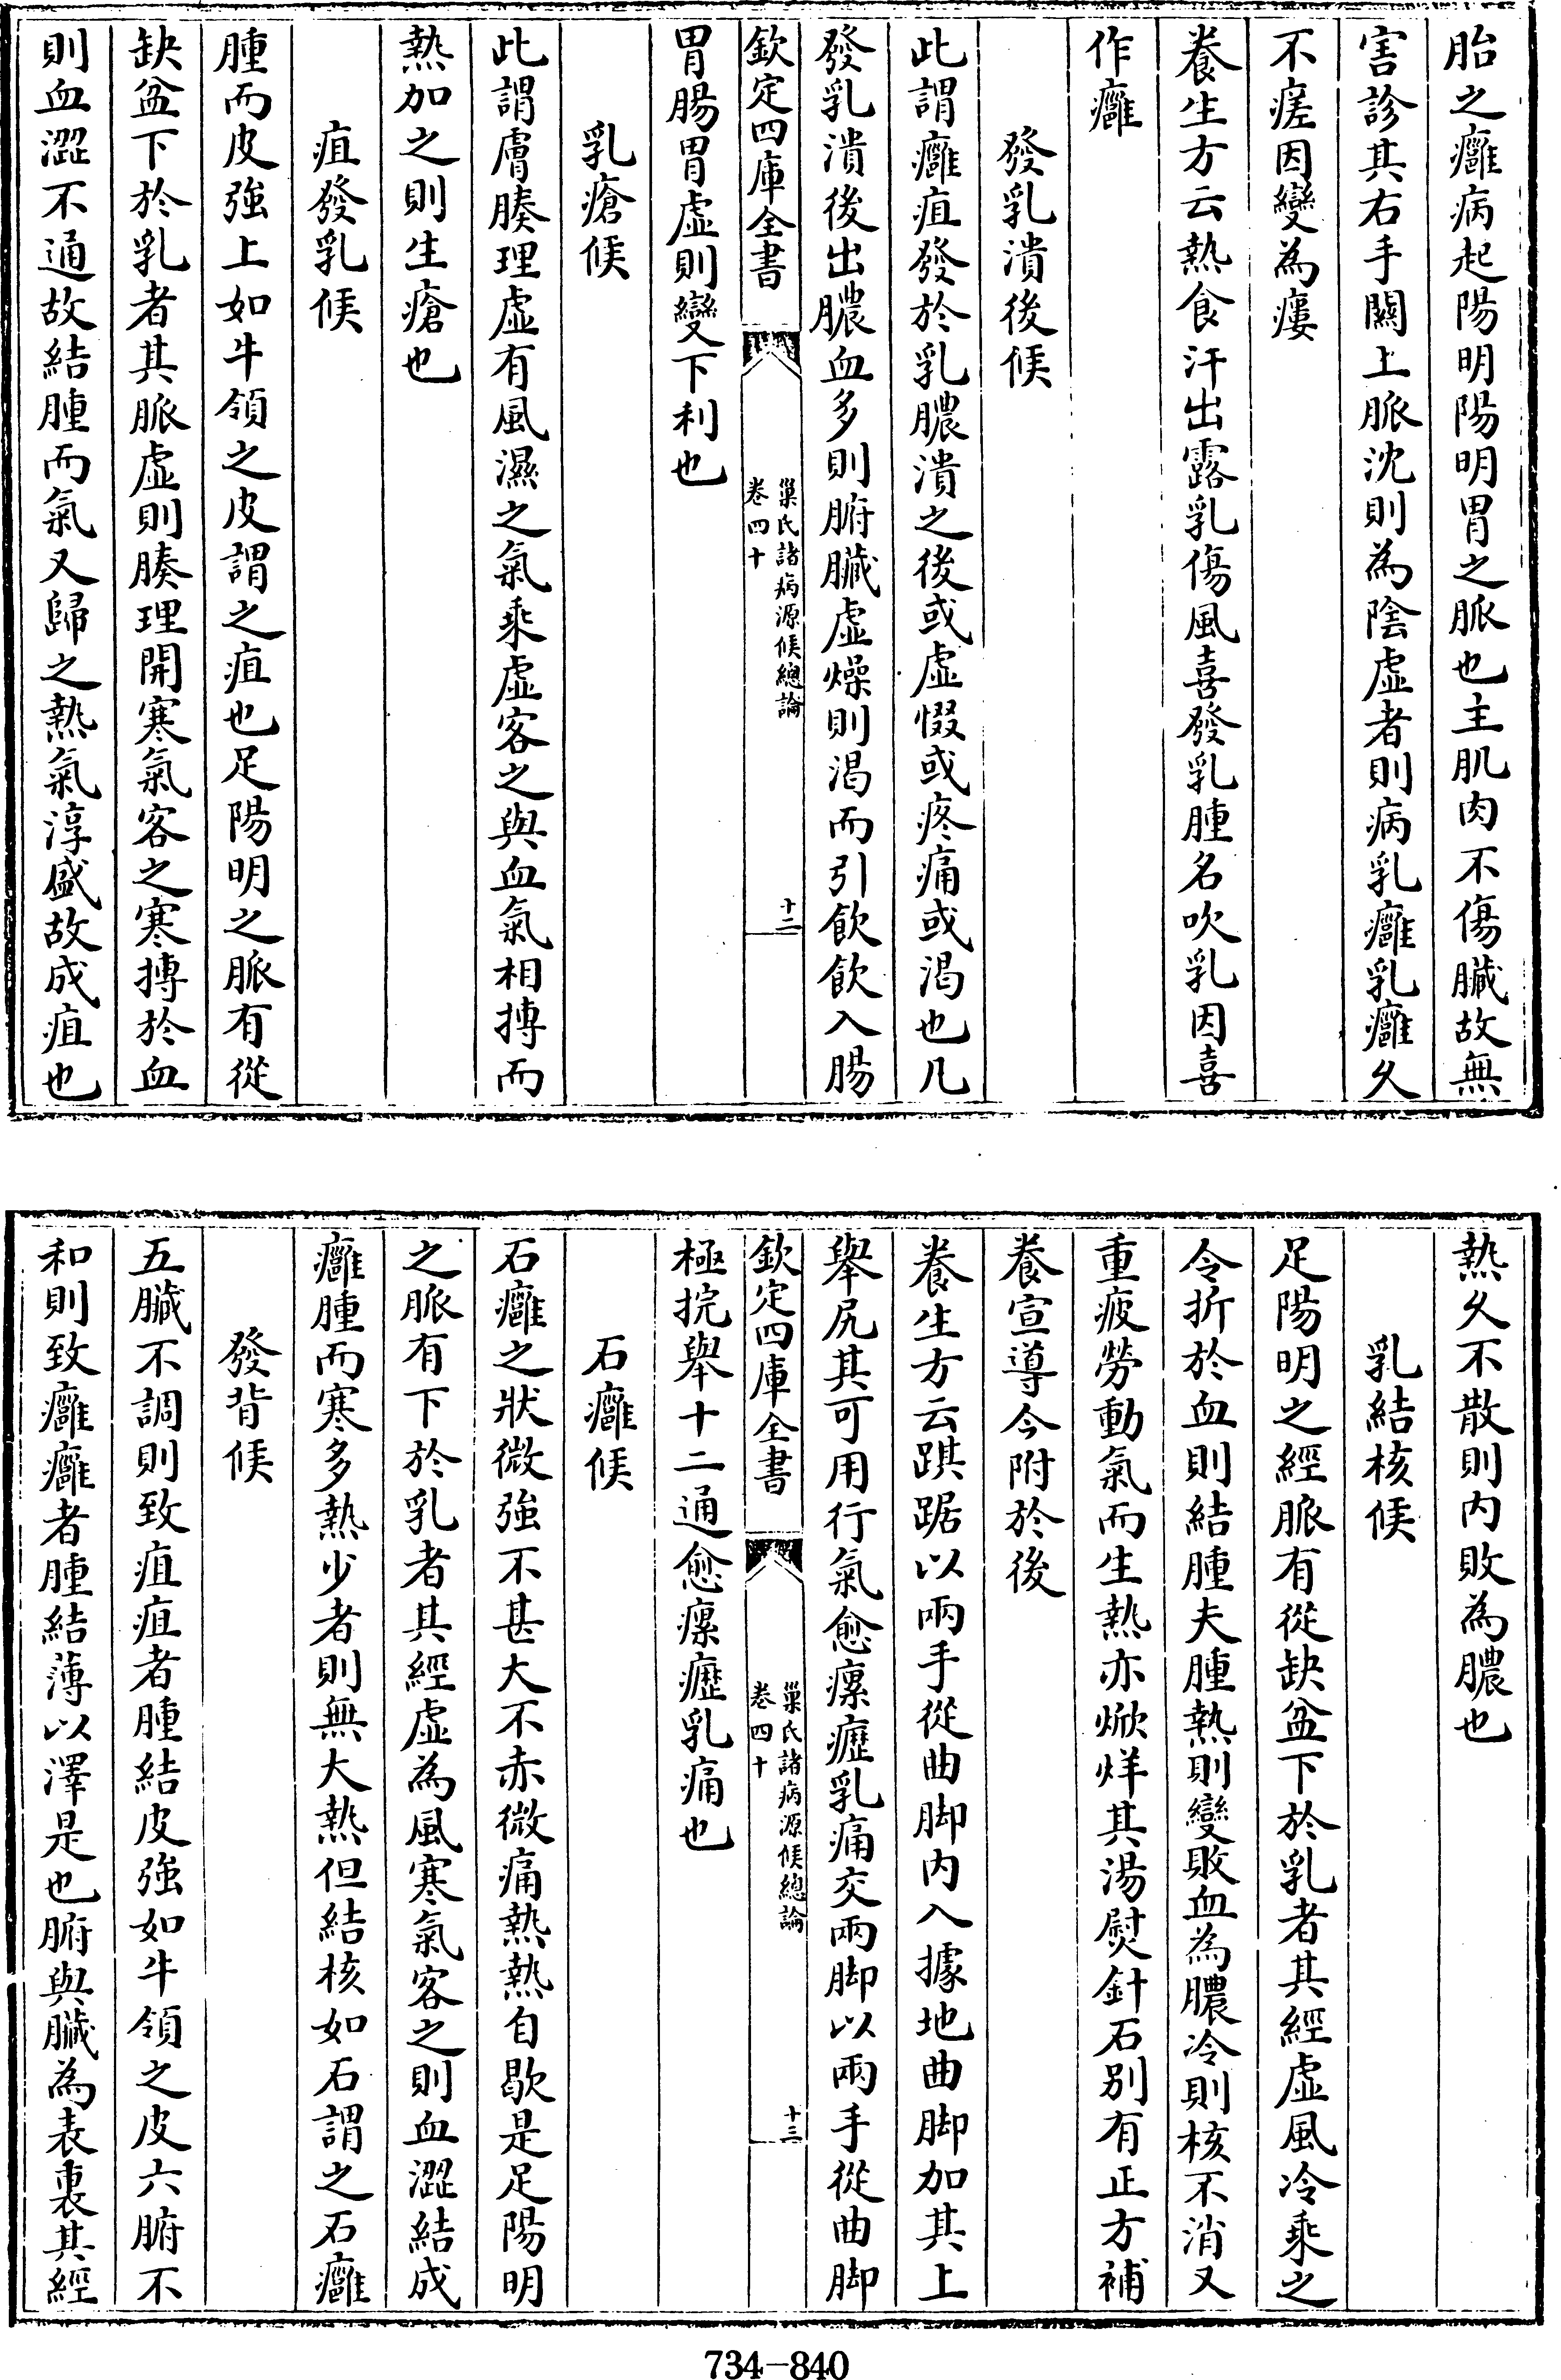 胎之癰病起陽明陽明胃之脈也主肌肉不傷臟故無
害診其右手關上脈沈則為陰虛者則病乳癰乳癰久
不瘥因變為瘻
養生方云熱食汗出露乳傷風喜發乳腫名吹乳因喜
作癰
發乳潰後候
此謂癰疽發於乳膿潰之後或虛惙或疼痛或渴也凡
發乳潰後出膿血多則腑臟虛燥則渴而引飲飲入腸
欽定四庫全書
巢氏諸病源候總論
卷四十
十二
胃腸胃虛則變下利也
乳瘡候
此謂膚腠理虛有風濕之氣乘虛客之與血氣相搏而
熱加之則生瘡也
疽發乳候
腫而皮強上如牛領之皮謂之疽也足陽明之脈有從
缺盆下於乳者其脈虛則腠理開寒氣客之寒搏於血
則血澀不通故結腫而氣又歸之熱氣淳盛故成疽也
熱久不散則內敗為膿也
乳結核候
足陽明之經脈有從缺盆下於乳者其經虛風冷乘之
令折於血則結腫夫腫熱則變敗血為膿冷則核不消又
重疲勞動氣而生熱亦焮烊其湯熨針石別有正方補
養宣導今附於後
養生方云踑踞以兩手從曲脚內入據地曲脚加其上
舉尻其可用行氣愈瘰癧乳痛交兩脚以兩手從曲脚
欽定四庫全書
巢氏諸病源候總論
卷四十
十三
極捥舉十二通愈瘰癧乳痛也
石癰候
石癰之狀微強不甚大不赤微痛熱熱自歇是足陽明
之脈有下於乳者其經虛為風寒氣客之則血澀結成
癰腫而寒多熱少者則無大熱但結核如石謂之石癰
發背候
五臟不調則致疽疽者腫結皮強如牛領之皮六腑不
和則致癰癰者腫結薄以澤是也腑與臟為表裏其經
734-840